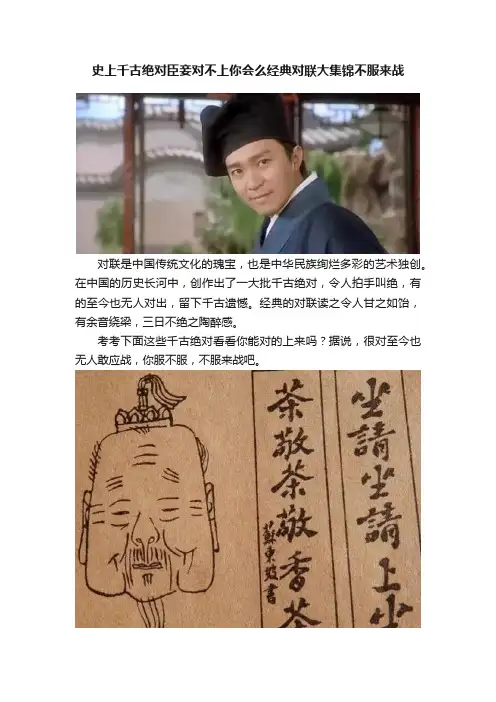 史上千古绝对臣妾对不上你会么经典对联大集锦不服来战
对联是中国传统文化的瑰宝，也是中华民族绚烂多彩的艺术独创。
在中国的历史长河中，创作出了一大批千古绝对，令人拍手叫绝，有
的至今也无人对出，留下千古遗憾。经典的对联读之令人甘之如饴，
有余音绕梁，三日不绝之陶醉感。
考考下面这些千古绝对看看你能对的上来吗？据说，很对至今也
无人敢应战，你服不服，不服来战吧。
坐請坐請上坐
茶敬茶敬香茶
蘇東坡書